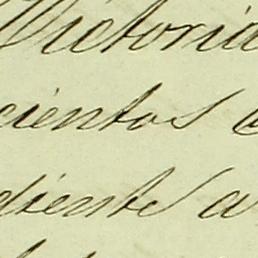 Victoria
cientos
diente a